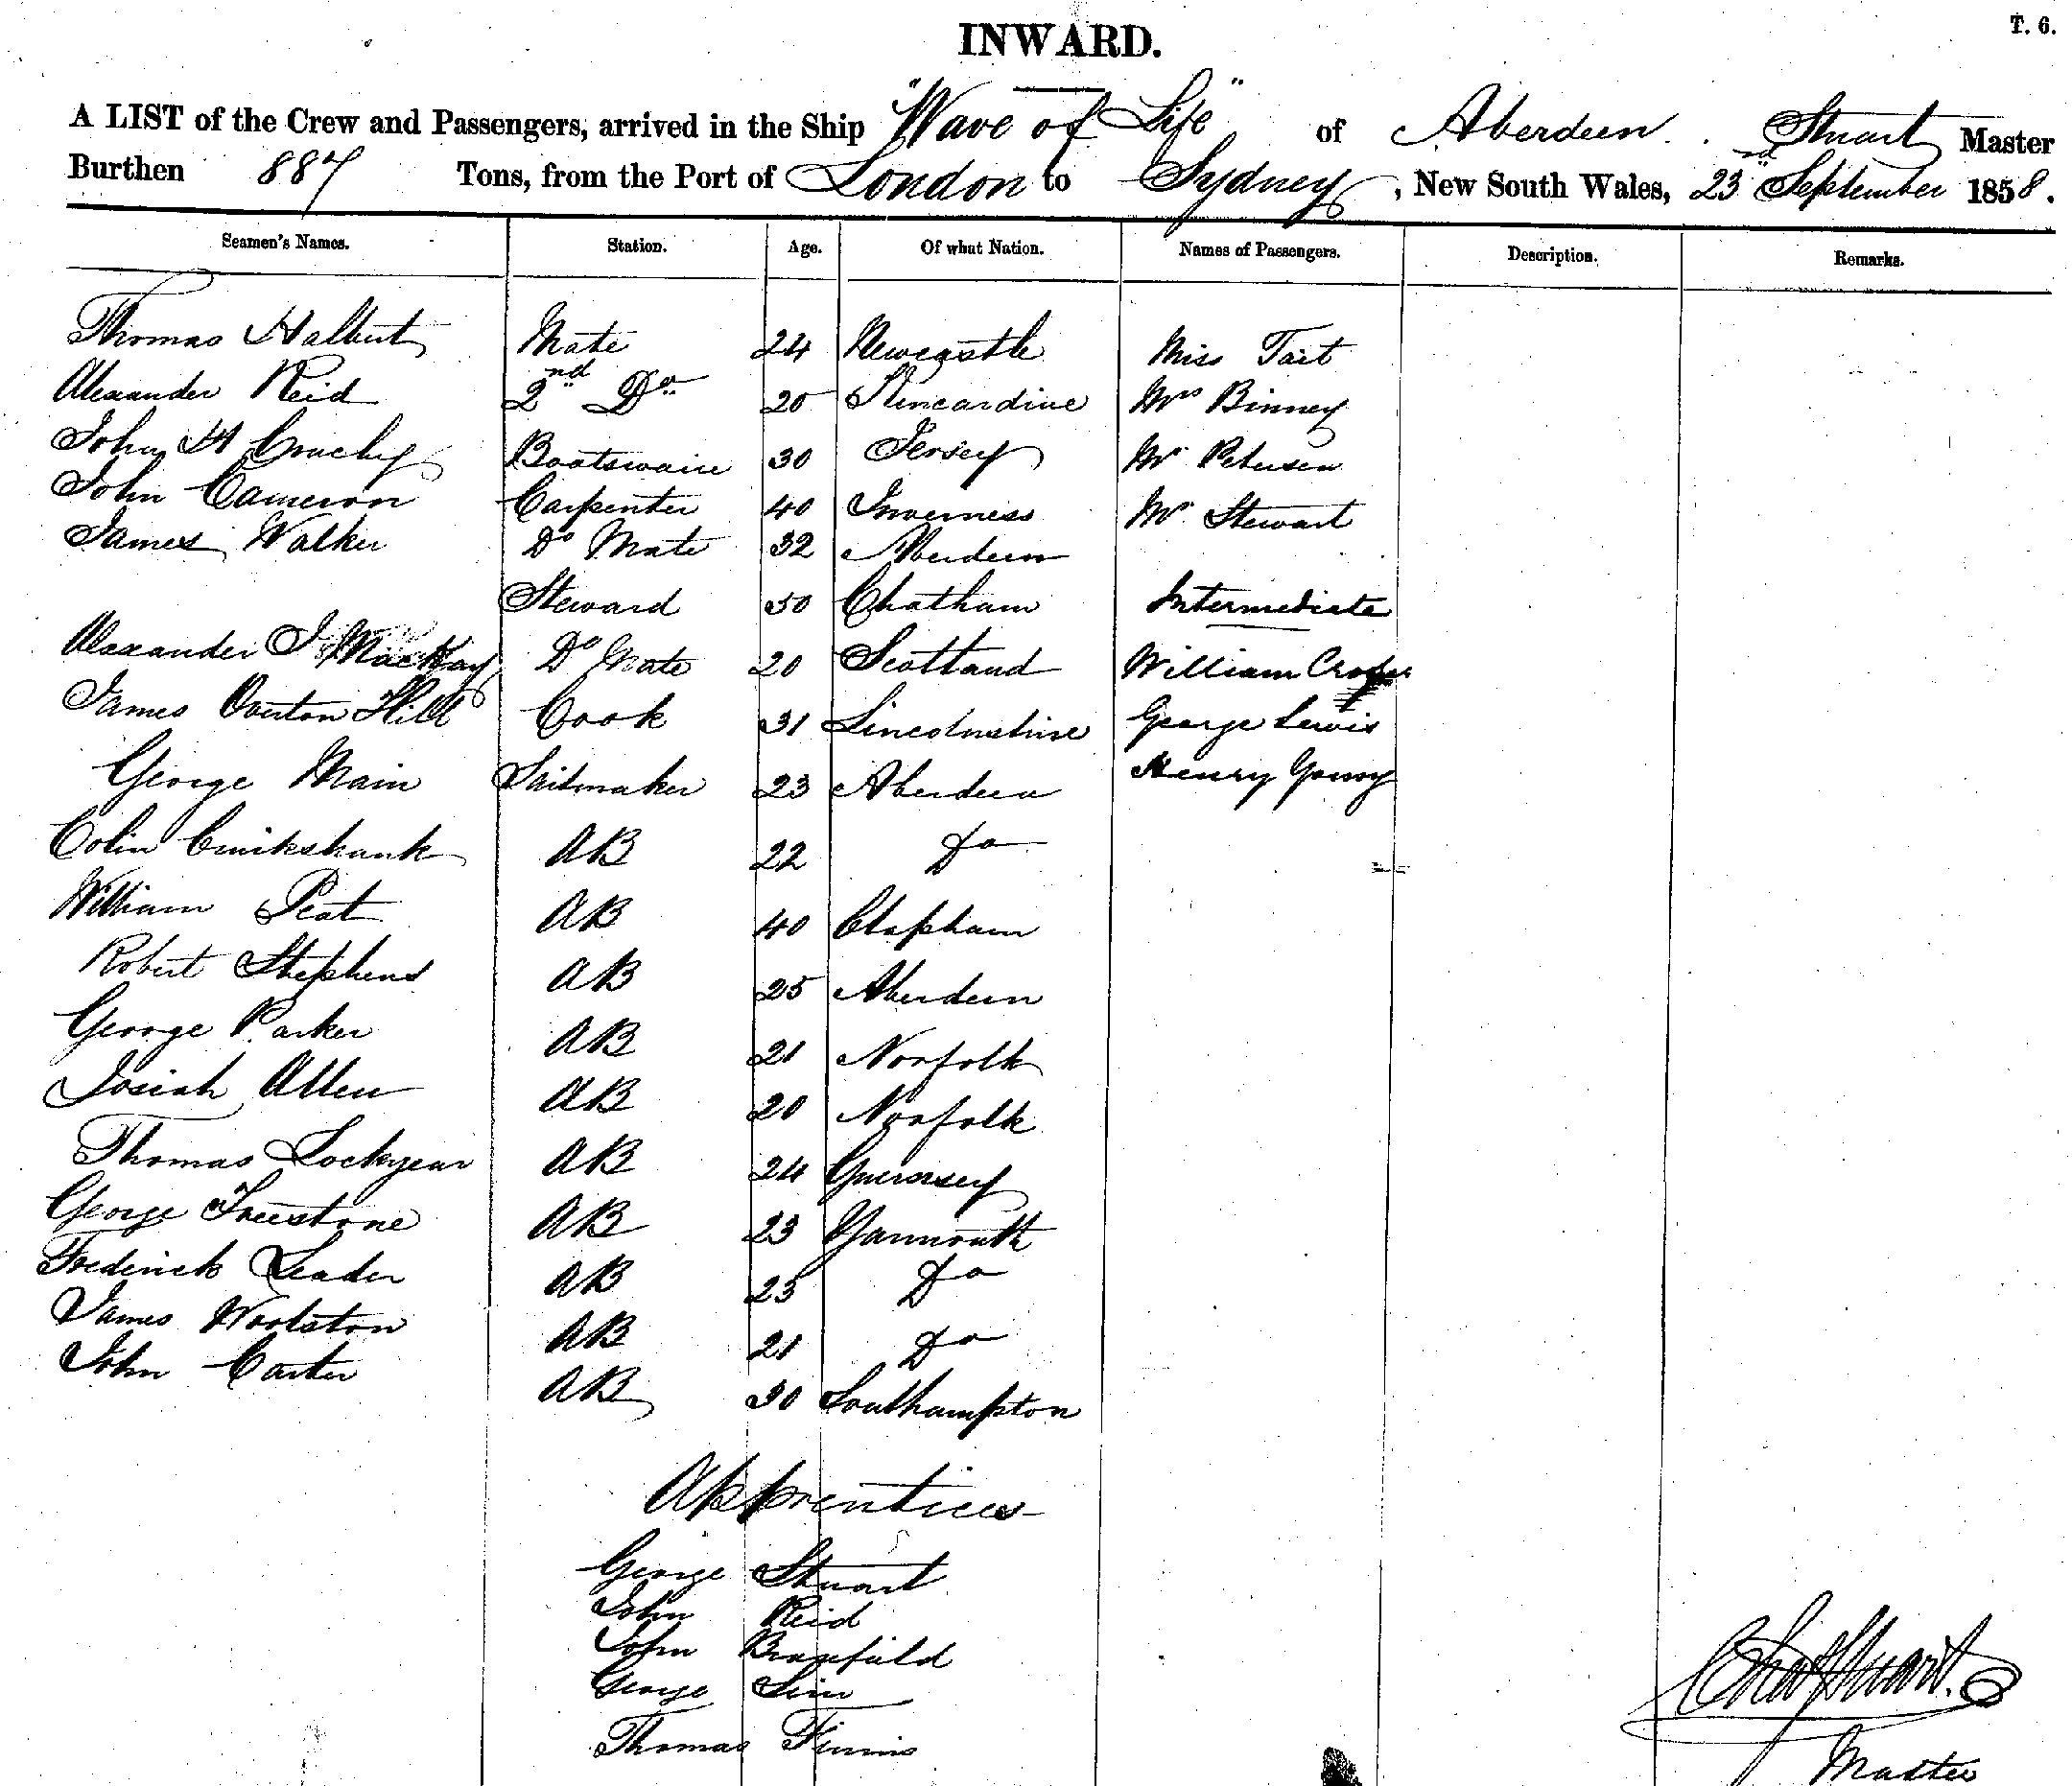 T. 6.
INWARD.
A LIST of the Crew and Passengers, arrived in the Ship "Wave of Life" of Aberdeen. Stuart Master
Burthen 887 Tons, from the Port of London to Sydney, New South Wales, 23rd September 1858.
Seamen's Names. Station. Age. Of what Nation. Names of Passengers. Description. Remarks.
Thomas Halbert Mate 24 Newcastle Miss Tait
Alexander Reid 2nd Do 20 Kincardine Mrs Binney
John H Boatswain 30 Jersey Mr Petersen
John Cameron Carpenter 40 Inverness Mr Stewart
James Walker Do Mate 32 Aberdeen
Steward 50 Chatham Intermediate
Alexander J MacKay Do Mate 20 Scotland William
James Overton Hill Cook 31 Lincolnshire George Lewis
George Main Sailmaker 23 Aberdeen Henry Young
Colin Cruikshank AB 22 Do
William Peat AB 40 Clapham
Robert Stephens AB 25 Aberdeen
George Parker AB 21 Norfolk
Josiah Allen AB 20 Norfolk
Thomas Lockyear AB 24 Guernsey
George Freestone AB 23 Yarmouth
Frederick Leader AB 25 Do
James Woolston AB 21 Do
John Carter AB 30 Southampton
Apprentices
George Stuart
John Reid
John
George Sim
Thomas Finnis
Chas Stuart.
Master